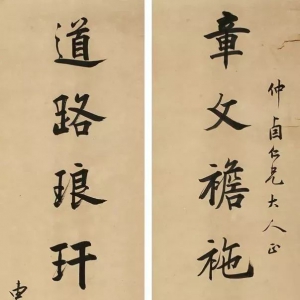 仲卣仁兄大人正
章文襜袘
道路琅玕